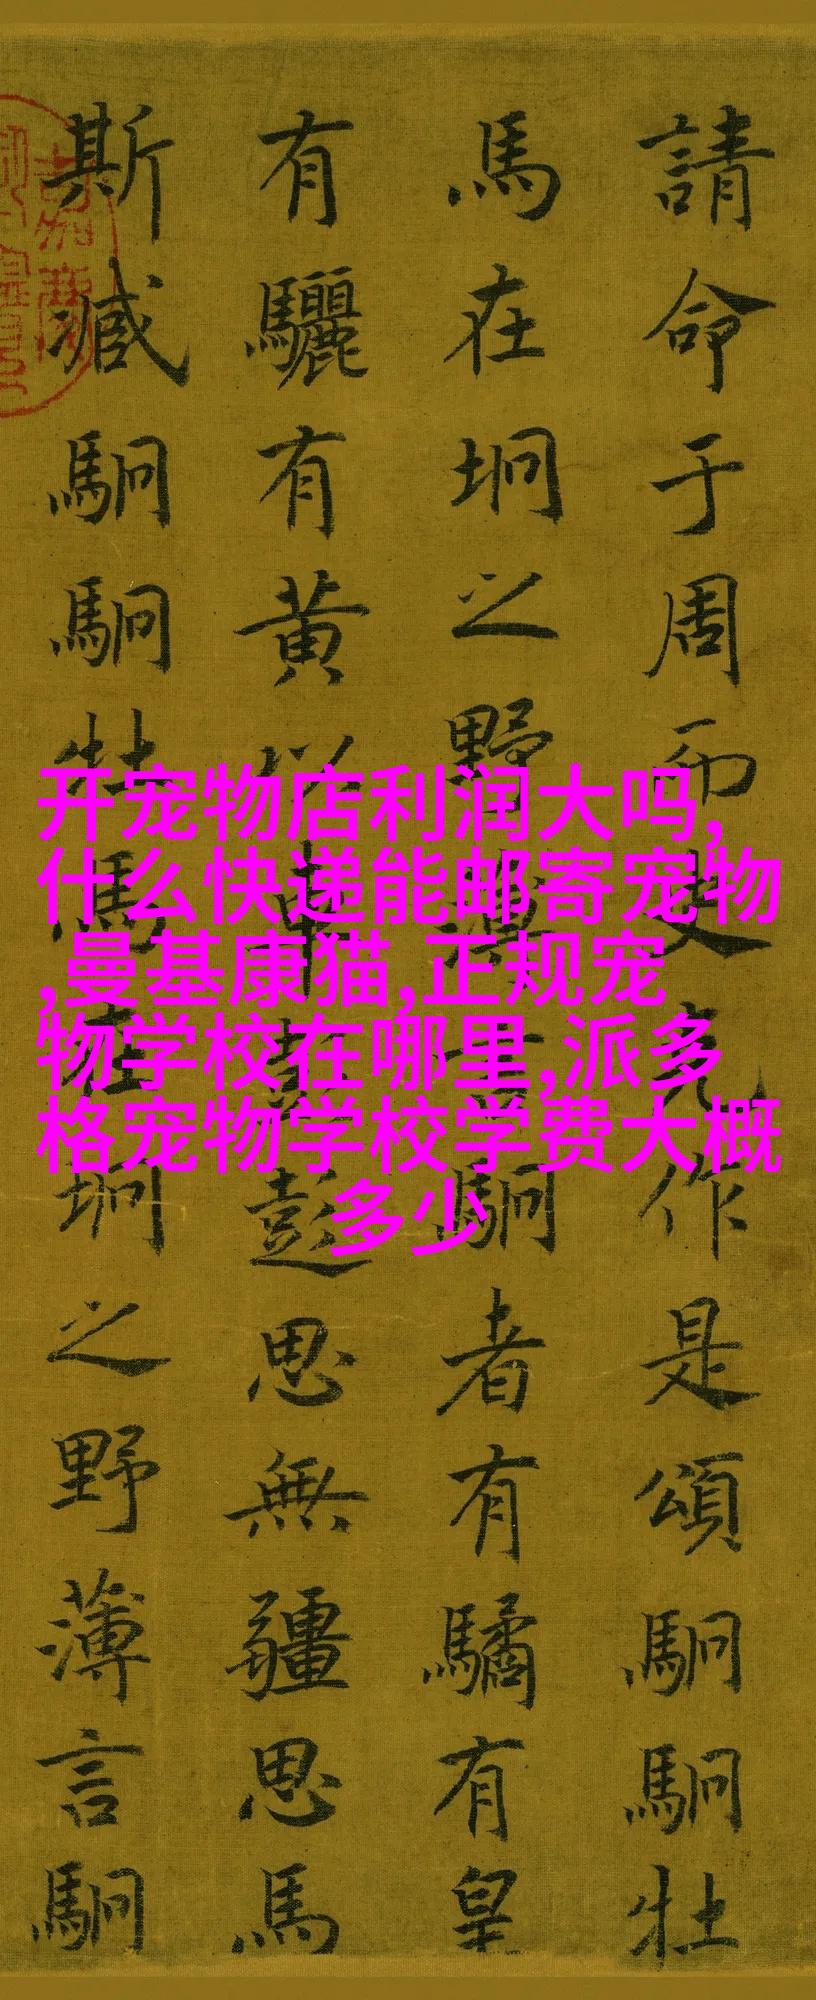 請命于周而史克作是頌駉駉牡
馬在坰之野薄言駉者有驈有皇
有驪有黃以車彭彭思無疆思馬
斯臧駉駉牡馬在坰之野薄言駉
开宠物店利润大吗,
什么快递能邮寄宠物
,曼基康猫,正规宠
物学校在哪里,派多
格宠物学校学费大概
多少